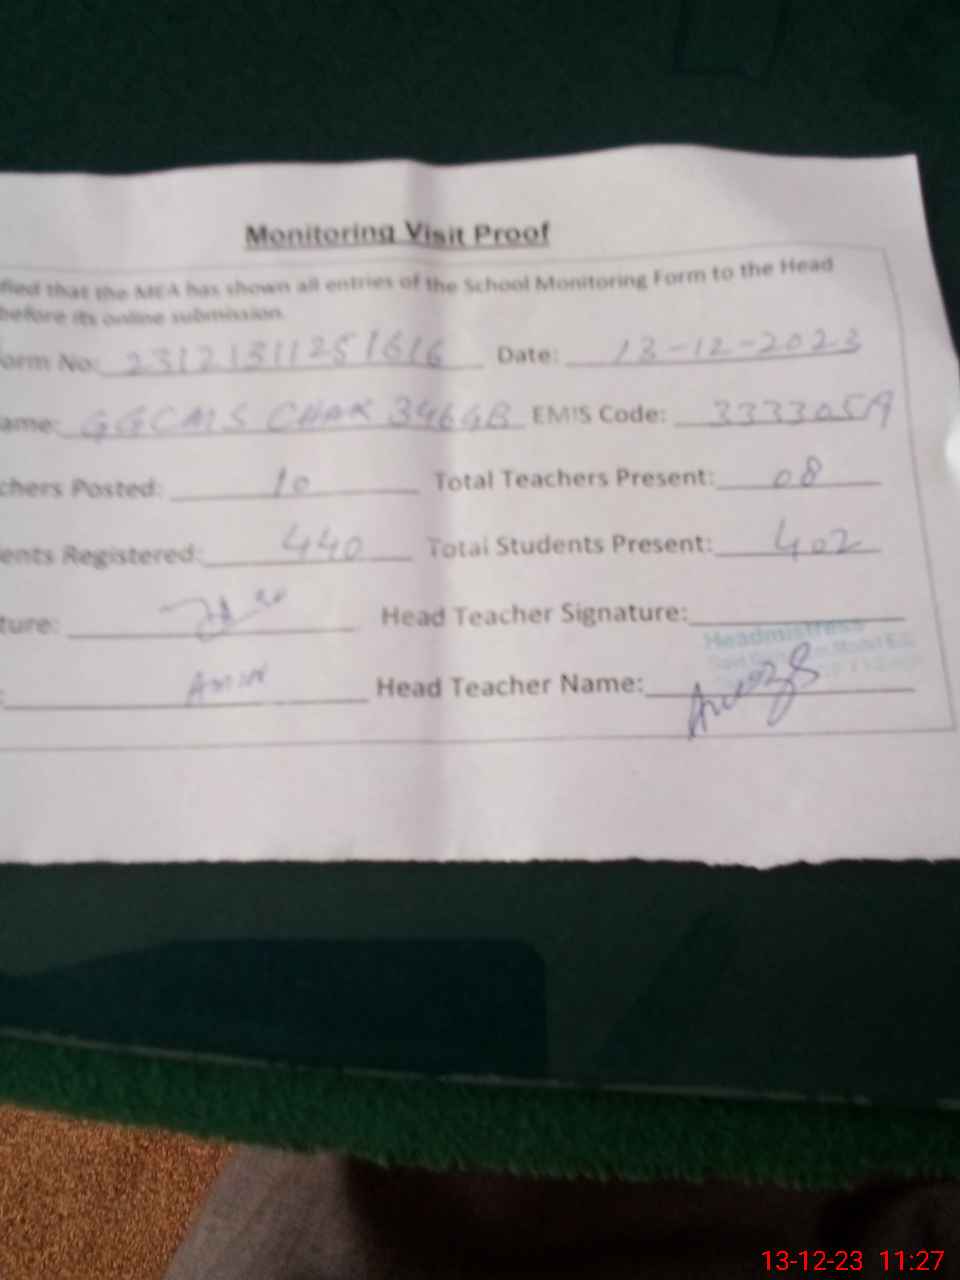 Monitoring Visit Proof
fied that the MEA has shown all entries of the School Monitoring Form to the Head
before its online submission.
orm No: 23121311251616 Date: 13-12-2023
ame: GGCMS CHAK 346GB EMIS Code: 33330519
chers Posted: 10 Total Teachers Present: 08
ents Registered: 440 Total Students Present: 402
ture: Head Teacher Signature:
Headmistress
: Head Teacher Name:
13-12-23 11:27